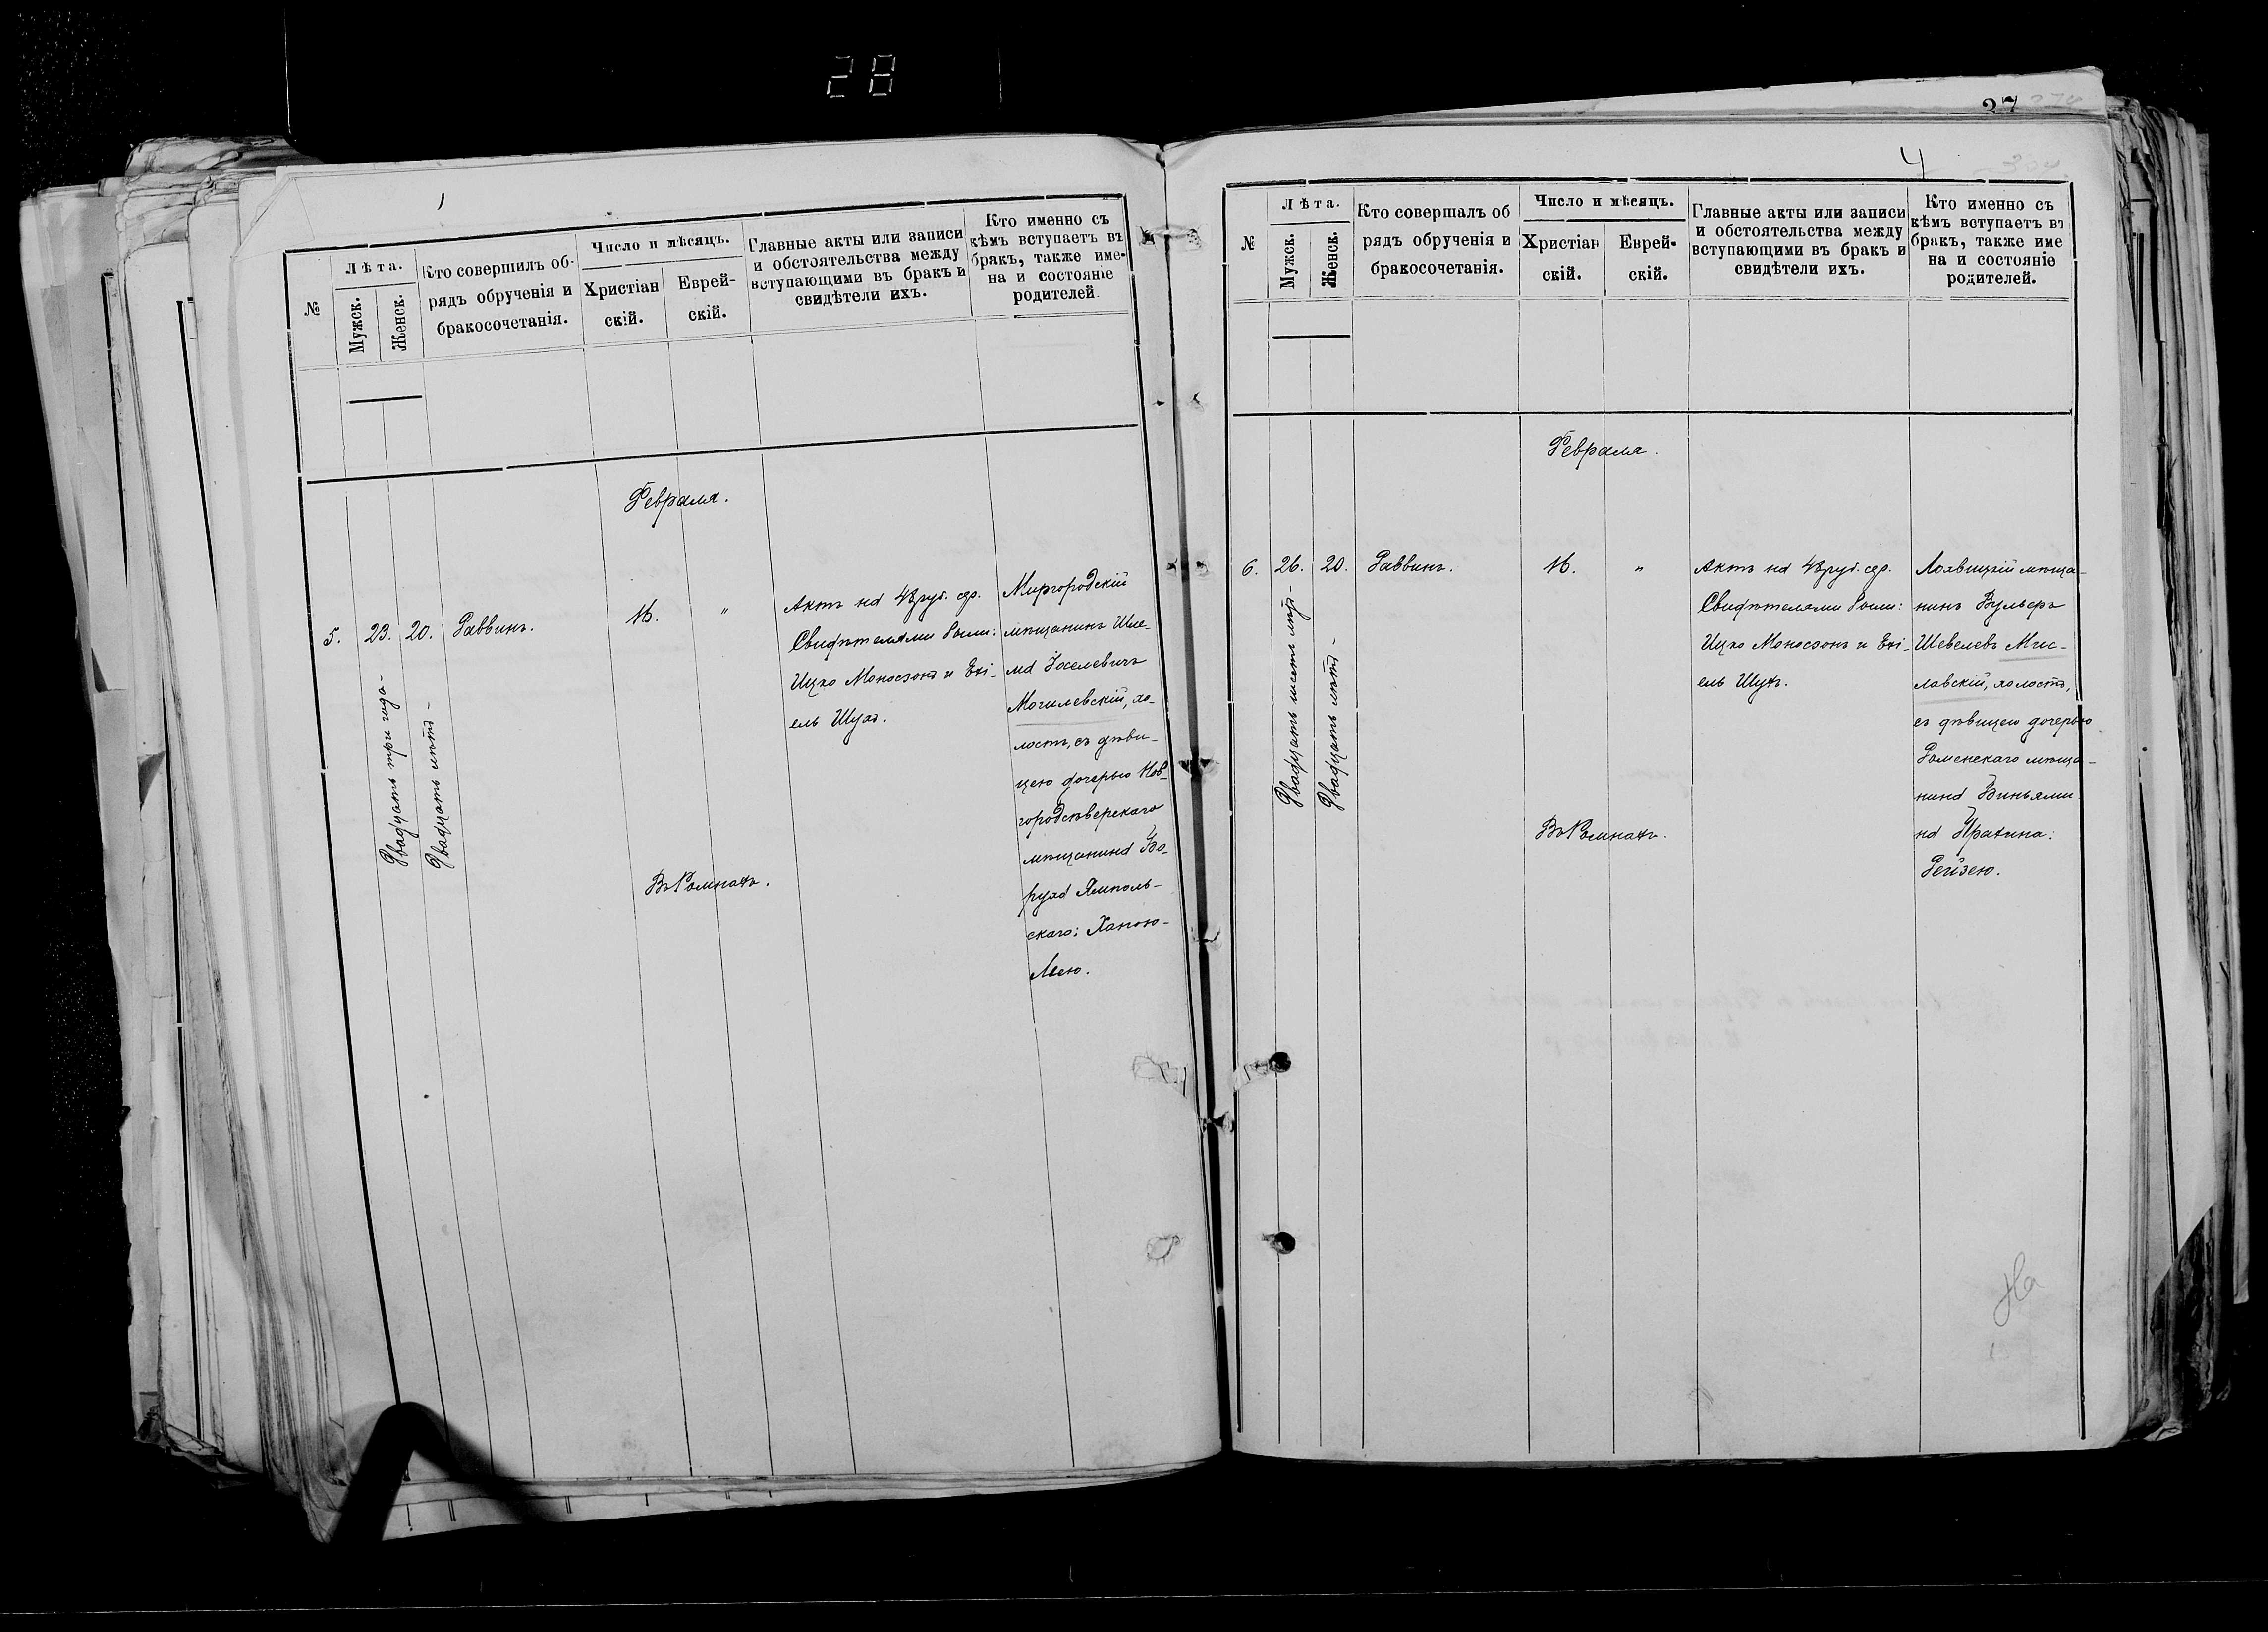 28
№
Лѣта.
Мужск.
Женск.
Кто совершилъ об-
рядъ обрученія и
бракосочетанія.
Число и мѣсяцъ.
Христіан
скій.
Еврей-
скій.
Главные акты или записи
и обстоятельства между
вступающими въ бракъ и
свидѣтели ихъ.
Кто именно съ
кѣмъ вступаетъ въ
бракъ, также име-
на и состояніе
родителей.
Февраля.
5.
23.
Двадцать три года-
20.
Двадцать лѣтъ-
Раввинъ.
16.
"
Въ Ромнахъ.
Актъ на 48 руб. сер.
Свидѣтелями были:
Ицко Моносзонъ и Ехі-
ель Шухъ.
Миргородскій
мѣщанинъ Шле-
ма Іоселевичъ
Могилевскій, хо-
лостъ, съ дѣви-
цею дочерью Нов-
городсѣверскаго
мѣщанина Бо-
руха Ямполь-
скаго: Ханою-
Леею.
37
4
№
Лѣта.
Мужск.
Женск.
Кто совершалъ об
рядъ обрученія и
бракосочетанія.
Число и мѣсяцъ.
Христіан
скій.
Еврей-
скій.
Главные акты или записи
и обстоятельства между
вступающими въ бракъ и
свидѣтели ихъ.
Кто именно съ
кѣмъ вступаетъ въ
бракъ, также име
на и состояніе
родителей.
Февраля.
6.
26.
Двадцать шесть лѣтъ-
20.
Двадцать лѣтъ-
Раввинъ.
16.
"
Въ Ромнахъ.
Актъ на 48 руб. сер.
Свидѣтелями были:
Ицко Моносзонъ и Ехі-
ель Шухъ.
Лохвицкій мѣща-
нинъ Вульфъ
Шевелевъ Мсти-
лавскій, холостъ,
съ дѣвицею дочерью
Роменскаго мѣща-
нина Биньями-
на
Рейзею.
На